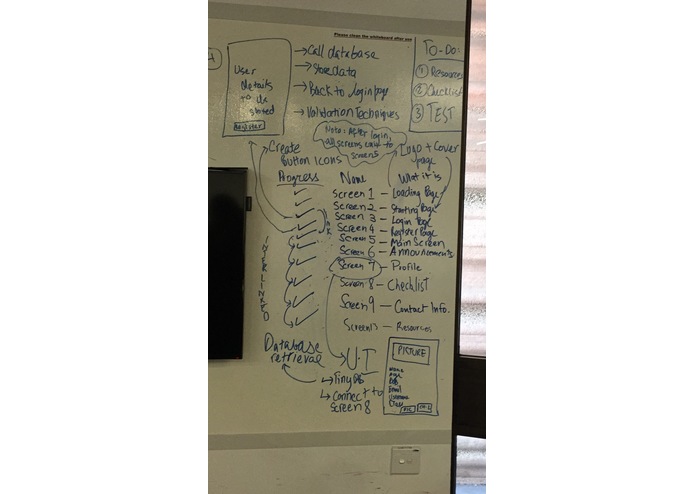 Please clean the whiteboard after use
User
Details
to be
stored
Register
→ Call database
→ Store data
→ Back to login page
→ Validation Techniques
TO-DO:
① Resources
② Checklist
③ TEST
Note: After login,
all screens exit to
Screen 5
Create
button icons
Logo + Cover
page
Progress Name What it is
Screen 1 – Loading Page
Screen 2 – Starting Page
Screen 3 – Login Page
Screen 4 – Register Page
Screen 5 – Main Screen
Screen 6 – Announcements
Screen 7 – Profile
Screen 8 – Checklist
Screen 9 – Contact Info.
Screen 13 – Resources
INTERLINKED
Database
retrieval
U.I
↳ Tiny DB
↳ Connect to
Screen 8
PICTURE
Name
Age
DOB
Email
Username